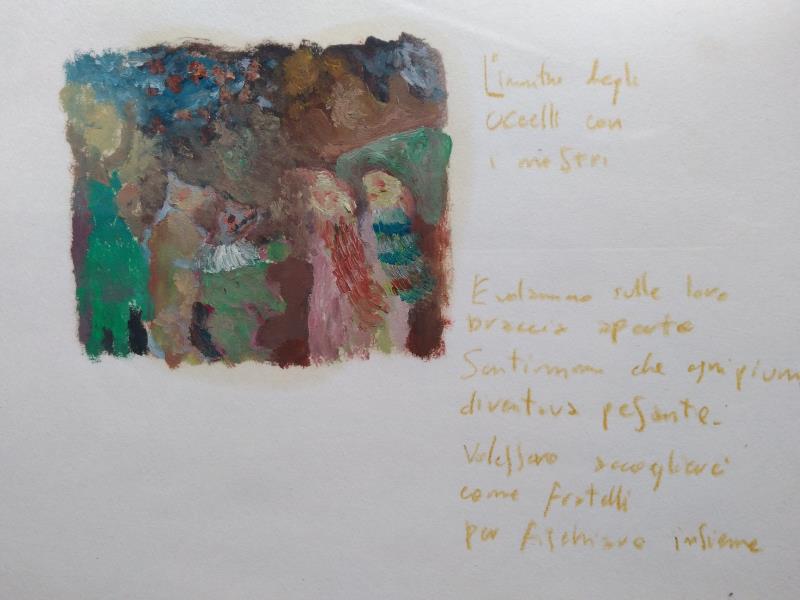 degli
Uccelli con
i mostri
E volammo sulle loro
braccia aperte
Sentimmo che ogni pium
diventava pesante.
Volessero accoglierci
come fratelli
per fischiare insieme